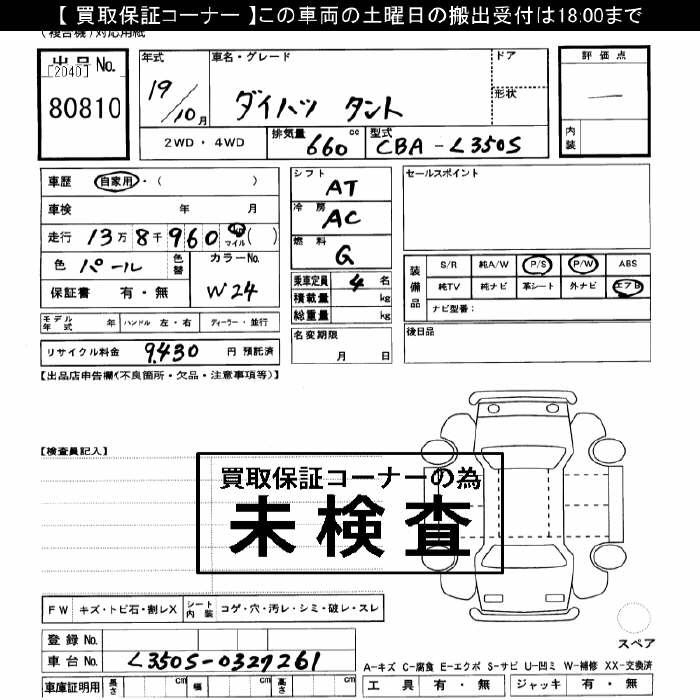 【 買取保証コーナー 】この車両の土曜日の搬出受付は18:00まで
(複合機)対応用紙
出品No.
[2040]
80810
年式 車名・グレード ドア
19/10月 ダイハツ タント 形状
2WD・4WD 排気量 660 cc 型式 CBA-L350S
評価点
—
内装
車歴 自家用・( )
車検 年 月
走行 13万8千960 km マイル ( )
色 パール 色替 カラーNo.
保証書 有・無 W24
モデル年式 年 ハンドル 左・右 ディーラー・並行
リサイクル料金 9,430 円 預託済
シフト AT
冷房 AC
燃料 G
乗車定員 4 名
積載量 kg
総重量 kg
名変期限
月 日
セールスポイント
装備品 S/R 純A/W P/S P/W ABS
純TV 純ナビ 革シート 外ナビ エアB
ナビ型番:
後日品
【出品店申告欄(不良箇所・欠品・注意事項等)】
【検査員記入】
買取保証コーナーの為
未検査
FW キズ・トビ石・割レX シート内装 コゲ・穴・汚レ・シミ・破レ・スレ
スペア
登録No.
車台No. L350S-0327261
車庫証明用 長さ cm 幅 cm 高さ cm
A-キズ C-腐食 E-エクボ S-サビ U-凹ミ W-補修 XX-交換済
工具 有・無 ジャッキ 有・無